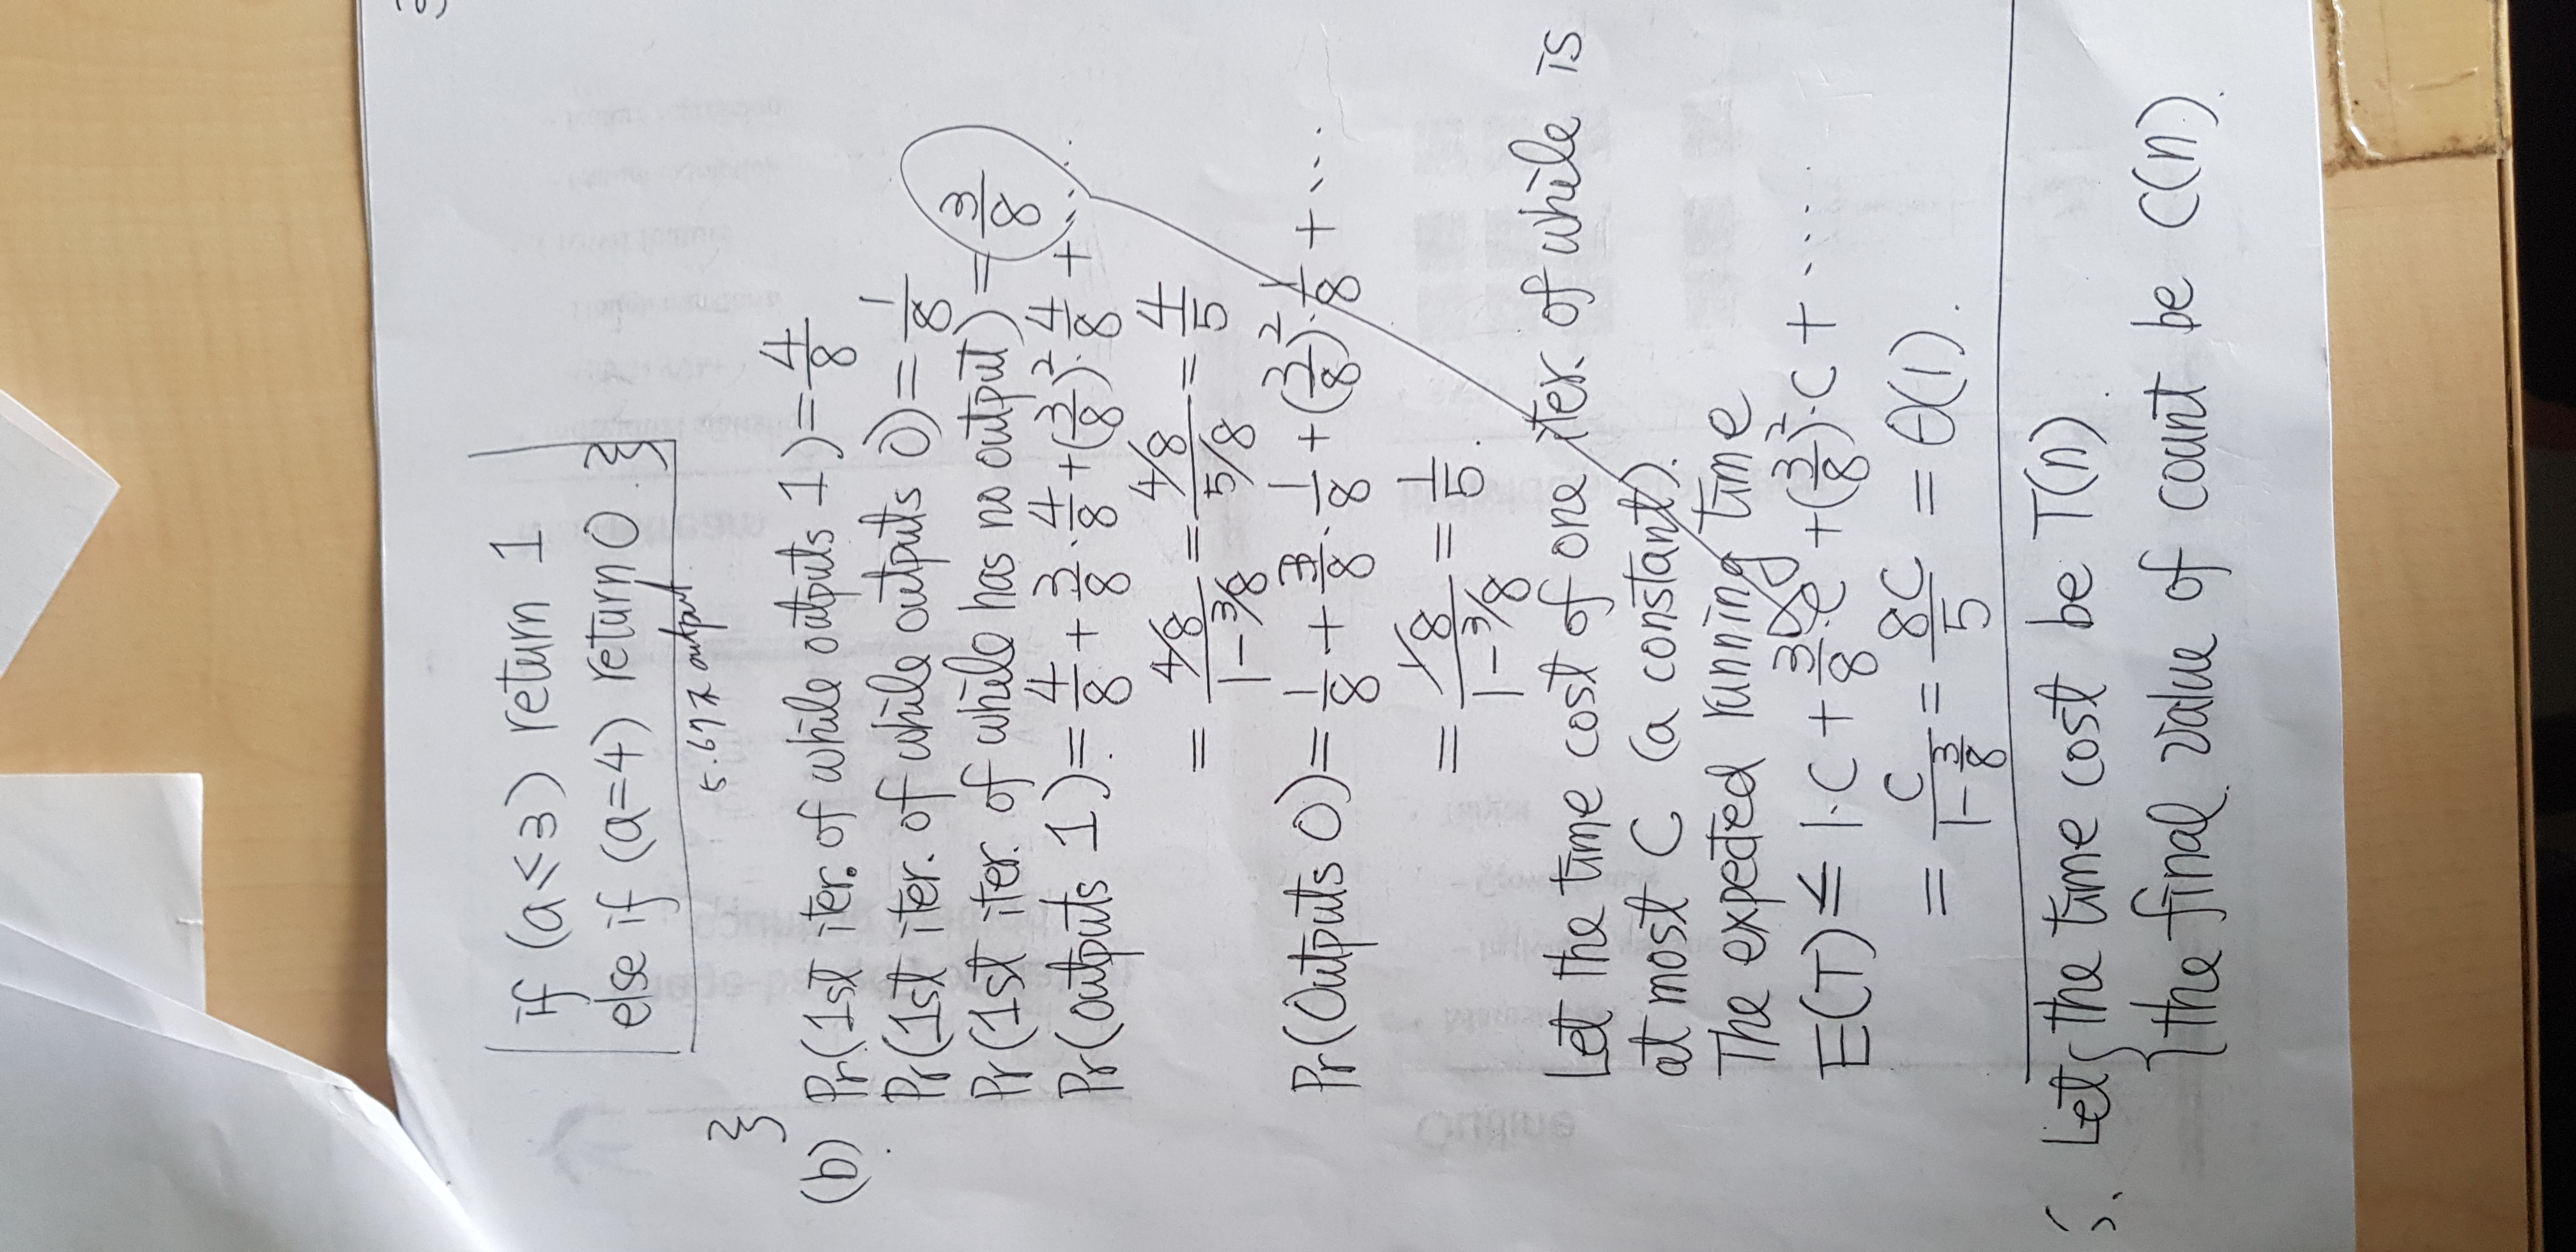 3
if (a≤3) return 1
else if (a=4) return 0 }
5.6.7 不 output
}
(b) Pr(1st iter. of while outputs 1) = 4/8
Pr(1st iter. of while outputs 0) = 1/8
Pr(1st iter. of while has no output) = 3/8
Pr(outputs 1) = 4/8 + 3/8 · 4/8 + (3/8)² · 4/8 + ....
= (4/8)/(1-3/8) = (4/8)/(5/8) = 4/5
Pr(Outputs 0) = 1/8 + 3/8 · 1/8 + (3/8)² · 1/8 + ...
= (1/8)/(1-3/8) = 1/5.
Let the time cost of one iter. of while is
at most C (a constant).
The expected running time
E(T) ≤ 1·C + 3/8·C + (3/8)²·C + .....
= C/(1-3/8) = 8C/5 = θ(1).
5. Let { the time cost be T(n).
the final value of count be C(n).